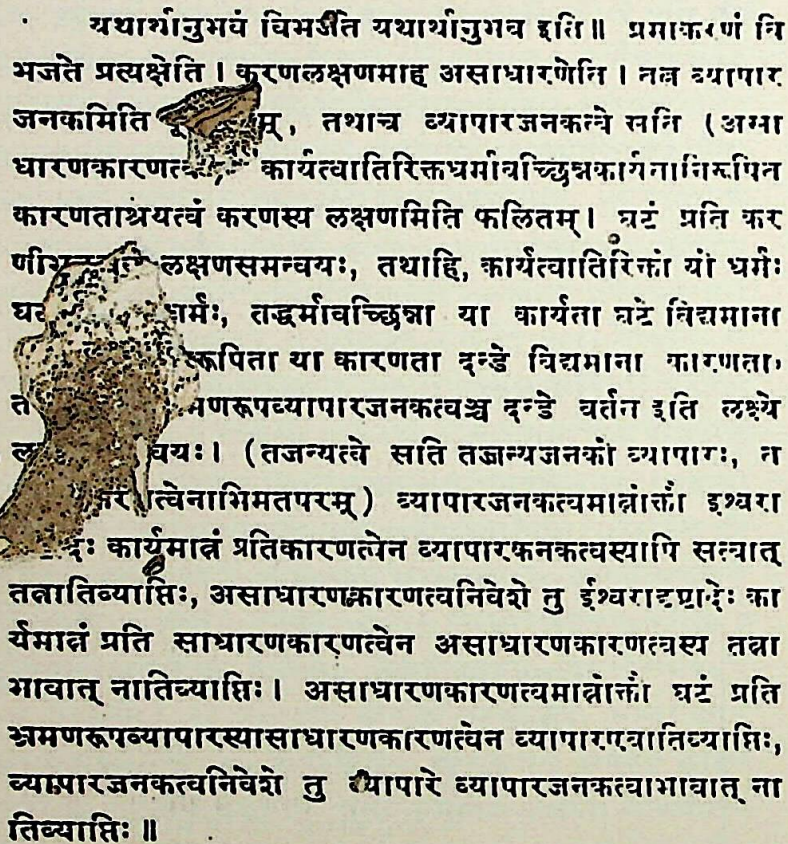 यथार्थानुभवं विभजते यथार्थानुभव इति॥ प्रमाकरणं वि
भजते प्रत्यक्षेति। करणलक्षणमाह असाधारणेति। तत्र व्यापार
जनकमिति म्, तथाच व्यापारजनकत्वे सति (असा
धारणकारणत्व कार्यत्वातिरिक्तधर्मावच्छिन्नकार्यतानिरूपित
कारणताश्रयत्वं करणस्य लक्षणमिति फलितम्। घटं प्रति कर
लक्षणसमन्वयः, तथाहि, कार्यत्वातिरिक्तो यो धर्मः
धर्मः, तद्धर्मावच्छिन्ना या कार्यता घटे विद्यमाना
रूपिता या कारणता दन्डे विद्यमाना कारणता,
त मणरूपव्यापारजनकत्वञ्च दन्डे वर्तत इति लक्ष्ये
ल वयः। (तजन्यत्वे सति तज्जन्यजनको व्यापारः, त
त्वेनाभिमतपरम्) व्यापारजनकत्वमात्रोक्तौ इश्वरा
देः कार्यमात्रं प्रतिकारणत्वेन व्यापारकनकत्वस्यापि सत्वात्
तत्रातिव्याप्तिः, असाधारणकारणत्वनिवेशे तु ईश्वरादृष्टादेः का
र्यमात्रं प्रति साधारणकारणत्वेन असाधारणकारणत्वस्य तत्रा
भावात् नातिव्याप्तिः। असाधारणकारणत्वमात्रोक्तौ घटं प्रति
भ्रमणरूपव्यापारस्यासाधारणकारणत्वेन व्यापारएवातिव्याप्तिः,
व्यापारजनकत्वनिवेशे तु व्यापारे व्यापारजनकत्वाभावात् ना
तिव्याप्तिः॥